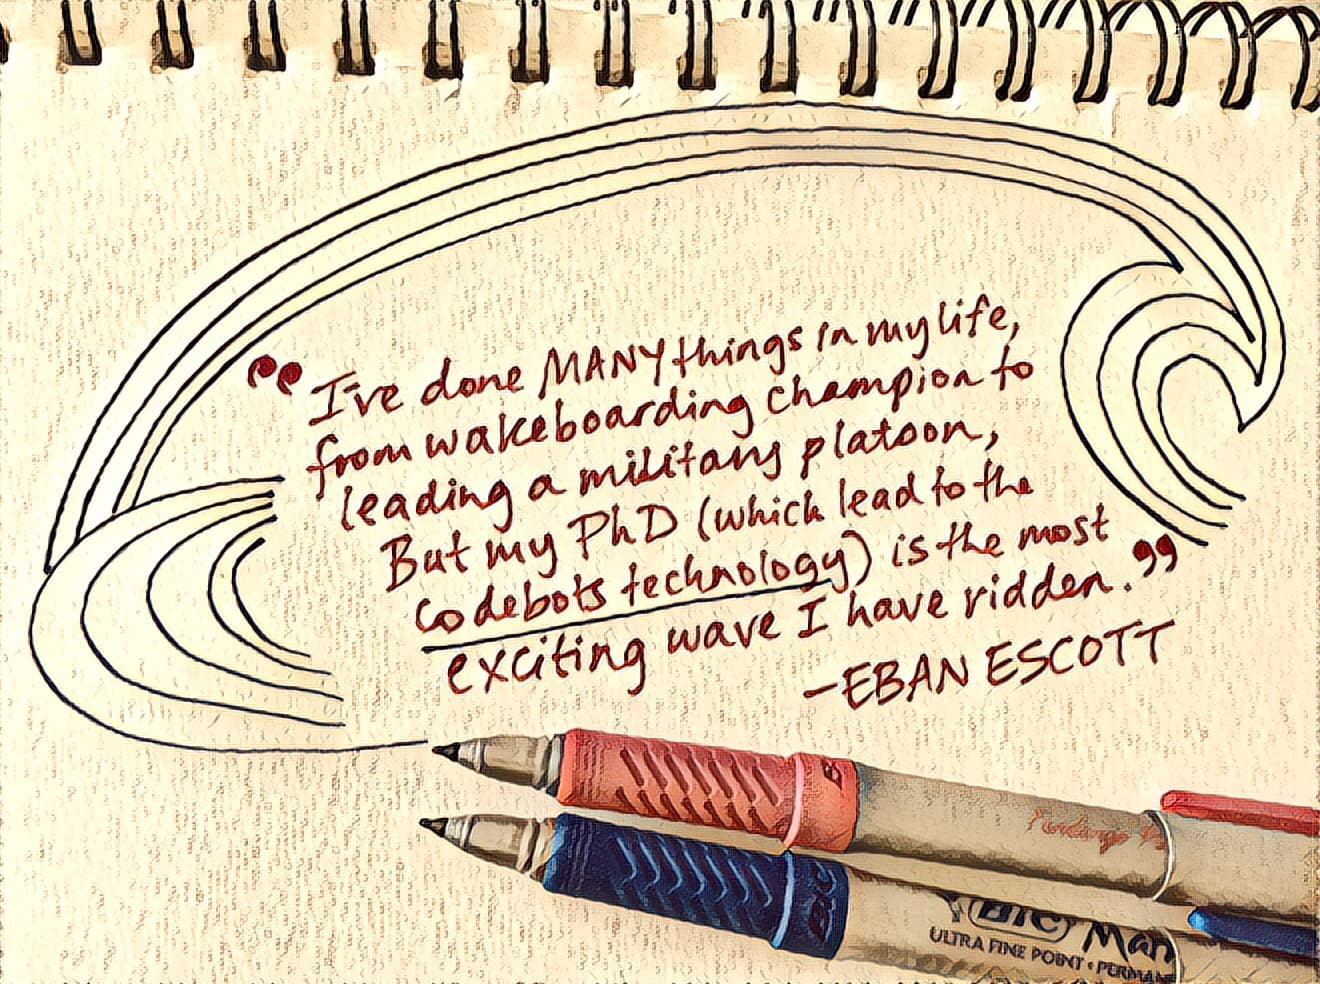 “I've done MANY things in my life,
from wakeboarding champion to
leading a military platoon,
But my PhD (which lead to the
codebots technology) is the most
exciting wave I have ridden.”
—EBAN ESCOTT
BIC
BIC Mar
ULTRA FINE POINT • PERMANE